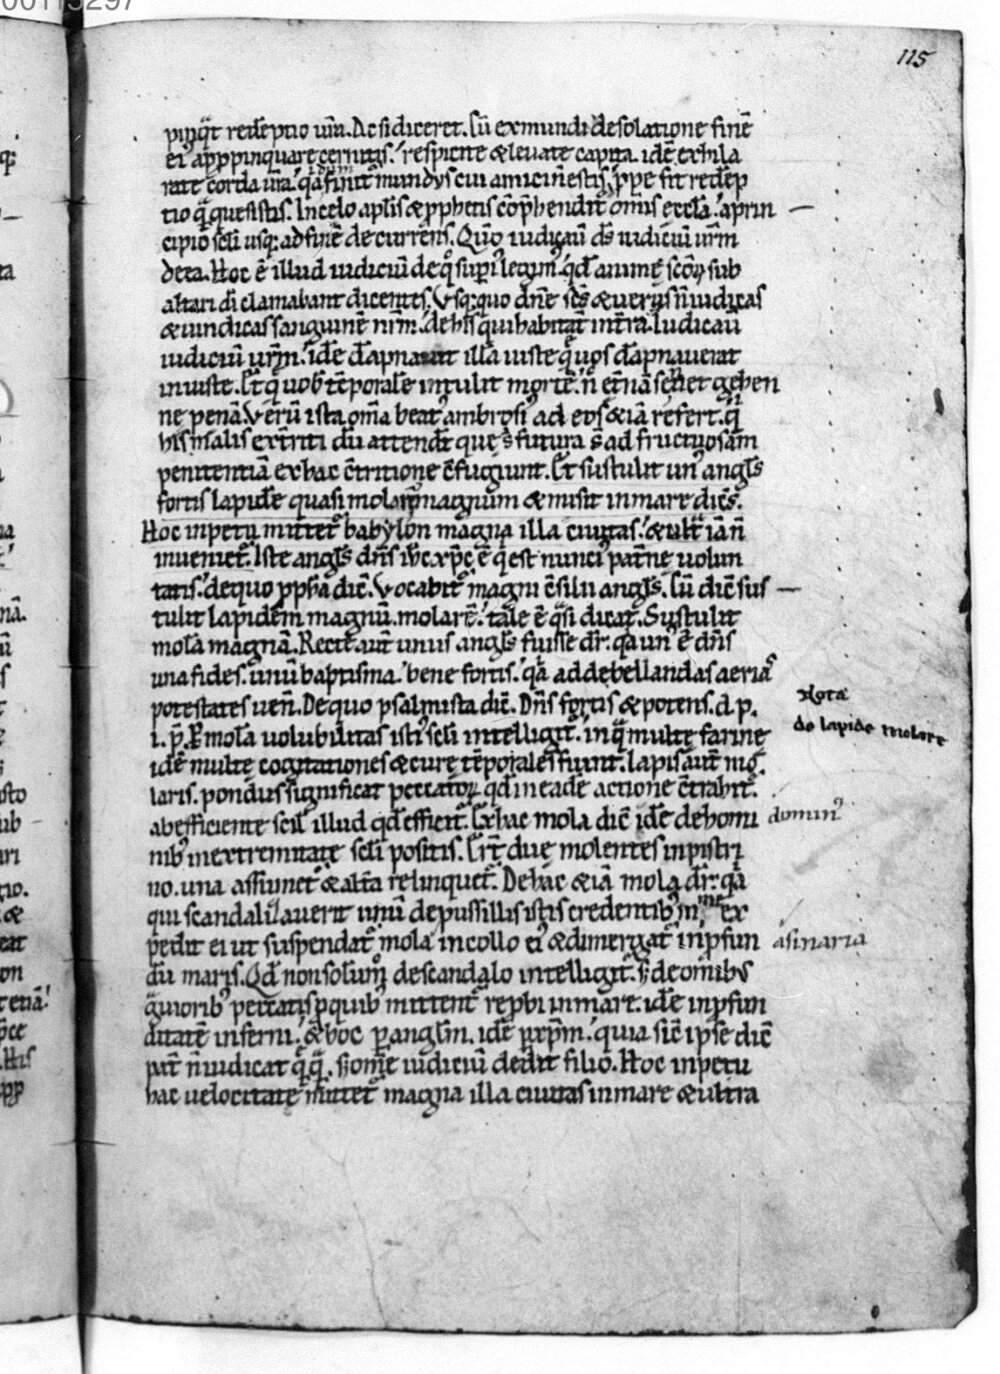 00115297
115
pinq̄t redēptio ūra. Ac si diceret. Cū ex mundi desolatione finē
ei appropinquare cernitis. respicite & leuate capita. idē exhila
rate corda ūra. q̄a dum finit᷑ mundus cui amici n̄ estis, ꝓpe fit redēp
tio q̄ quesistis. In celo aplīs & ꝓphetis cōp̄hendit᷑ omīs eccl̄a. a prin
cipio sclī usq; ad finē decurrens. Qm̄ iudicauit ds̄ iudiciū ur̄m
de ea. Hoc ē illud iudiciū de q̊ supi legim᷒. qd̄ animę scōꝝ sub
altari dī clamabant dicentes. Vsq; quo dn̄e scs̄ & uerus n̄ iudicas
& uindicas sanguinē nr̄m. de his qui habitāt in t̄ra. Iudicauit
iudiciū ur̄m. idē dāpnauit illā iuste q̄ uos dāpnauerat
iniuste. Et q̄ uob᷒ tēporalē intulit mortē. n̄ et̄nā sētiet gehen
ne penā. Verū ista om̄a beat᷒ ambrosi᷒ ad eos &iā refert. q
his malis cōtriti dū attendūt que s̄ futura s̄ ad fructuosam
penitentiā ex hac cōtritione cōfugiunt. Et sustulit un᷒ angl̄s
fortis lapidē quasi molarē magnum & misit in mare dicēs.
Hoc inpetu mittet᷑ babylon magna illa ciuitas. & ult᷑ iā n̄
inueniet᷑. Iste angl̄s dn̄s ih̄c xp̄c ē q̄ est nunci᷒ patnē uolun
tatis. de quo ꝓph̄a dic̄. Vocabit᷑ magni cōsilii angl̄s. Cū dic̄ sus
tulit lapidem magnū. molarē. tale ē q̄si dicat. Sustulit
molā magnā. Recte aut̄ unus angl̄s fuisse dr̄. q̄a un᷒ ē dn̄s
una fides. unū baptisma. bene fortis. q̄a ad debellandas aerias
potestates uen̄. De quo psalmista dic̄. Dn̄s fortis & potens. d. p.
i. p̄. P molā uolubilitas isti᷒ sclī intelligit᷑. in q̄ multę farinę
idē multę cogitationes & curę tēporales fiunt. Lapis aut̄ mo
laris. pondus significat peccatoꝝ qd̄ in eadē actione cōtrahit᷑.
ab efficiente scil̄ illud qd̄ efficit᷑. Ex hac mola dic̄ idē de homi
nib᷒ in extremitate sclī positis. Er̄t duę molentes in pistri
no. una assumet᷑ & alt̄a relinquet᷑. De hac &iā mola dr̄. q̄a
qui scandalizauerit unū de pussillis istis credentib᷒ in me ex
pedit ei ut suspendat᷑ mola in collo ei᷒ & dimergat᷑ in ꝓfun
dū maris. Qd̄ non solum de scandalo intelligit᷑. s; de om̄ib᷒
g̊uiorib᷒ peccatis ꝑ quib᷒ mittent᷑ rep̄bi in mare. idē in ꝓfun
ditatē inferni. & hoc ꝑ angl̄m. idē ꝑ xp̄m. quia sic̄ ipse dic̄
pat᷑ n̄ iudicat q̄q̄. s; om̄e iudiciū dedit filio. Hoc inpetu
hac uelocitate mittet᷑ magna illa ciuitas in mare & ultra
Nota
de lapide molare
domin᷒
asinaria